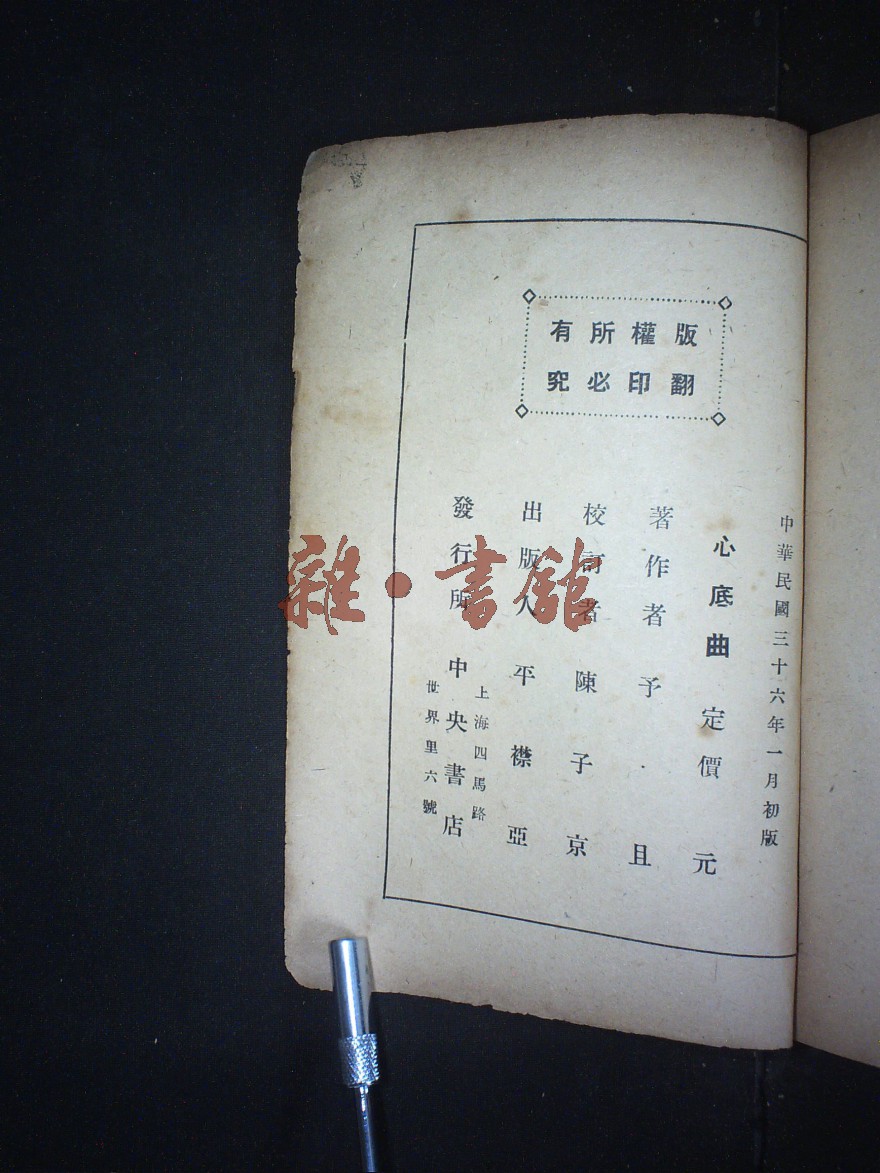 版權所有
翻印必究
中華民國三十六年一月初版
心底曲 定價 元
著作者 予·且
校訂者 陳子京
出版人 平襟亞
發行所 中央書店
上海四馬路
世界里六號
雜·書館